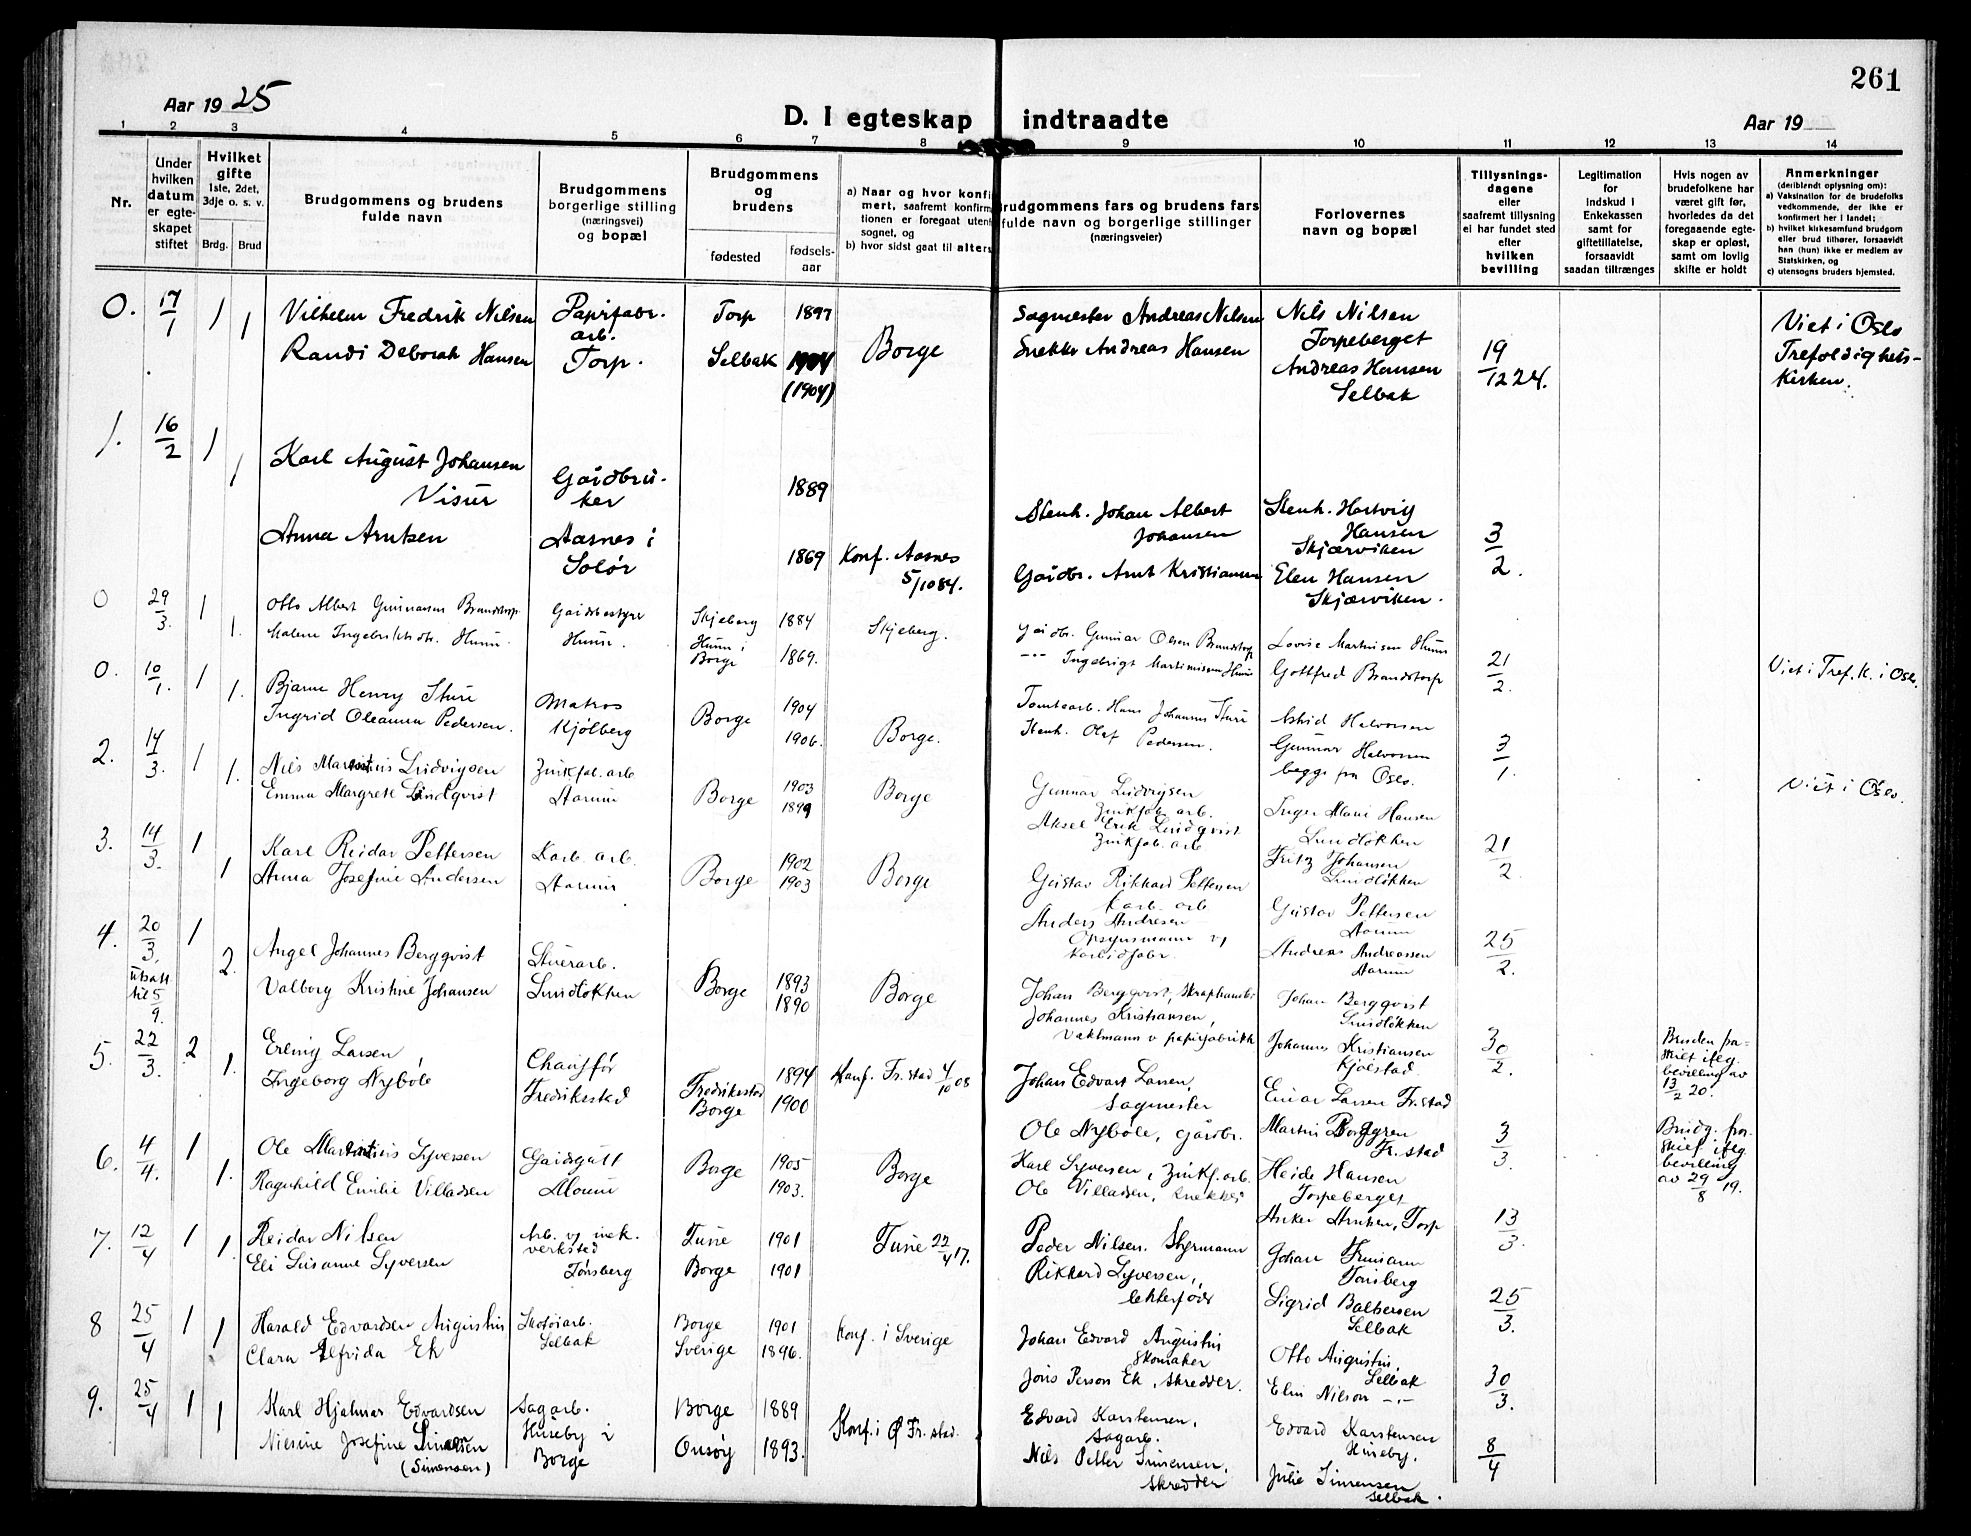 261
Aar 1925
D. I egteskap indtraadte
Aar 19
1 2 3 4 5 6 7 8 9 10 11 12 13 14
Nr.
Under hvilken datum er egteskapet stiftet
Hvilket gifte
1ste, 2det, 3dje o. s. v.
Brdg. Brud
Brudgommens og brudens fulde navn
Brudgommens borgerlige stilling (næringsvei) og bopæl
Brudgommens og brudens
fødested
fødsels-aar
a) Naar og hvor konfirmert, saafremt konfirmationen er foregaat utenfor sognet, og
b) hvor sidst gaat til alters
Brudgommens fars og brudens fars fulde navn og borgerlige stillinger (næringsveier)
Forlovernes navn og bopæl
Tillysnings-dagene eller saafremt tillysning ei har fundet sted efter hvilken bevilling
Legitimation for indskud i Enkekassen samt for giftetillatelse, forsaavidt saadan tiltrænges
Hvis nogen av brudefolkene har været gift før, hvorledes da det foregaaende egteskap er opløst, samt om lovlig skifte er holdt
Anmerkninger
(deriblendt oplysning om):
a) Vaksination for de brudefolks vedkommende, der ikke er konfirmert her i landet;
b) hvilket kirkesamfund brudgom eller brud tilhører, forsaavidt han (hun) ikke er medlem av Statskirken, og
c) utensogns bruders hjemsted.
0. 17/1 1 1
Vilhelm Fredrik Nilsen
Randi Deborah Hansen
Papirfabr. arb.
Torp.
Torp 1897
Selbak 1904
(1904)
Borge
Sagmester Andreas Nilsen
Snekker Andreas Hansen
Nils Nilsen
Torpeberget
Andreas Hansen
Selbak
19/12 24.
Viet i Oslo
Trefoldighets-
Kirken.
1. 16/2 1 1
Karl August Johansen
Visur
Anna Arntsen
Gaardbru-
ker
Aasnes i
Solør
1889
1869
Konf. Aasnes
5/10 84.
Stenh. Johan Albert
Johansen
Gaardbr. Arnt Kristiansen
Stenh. Hartvig
Hansen
Skjærviken
Elen Hansen
Skjærviken.
3/2.
0 29/3. 1 1.
Otto Albert Gunnarsen Brandstorp
Malene Ingebrigtsdtr. Hunn.
Gaardbestyrer
Hunn.
Skjeberg 1884
Hunn i
Borge 1869.
Skjeberg.
Gaardbr. Gunnar Olsen Brandstorp
-"- Ingebrigt Martinusen Hunn
Lovise Martinsen Hunn
Gottfred Brandstorp
21/2.
Viet i Tref. K. i Oslo.
0. 10/1. 1 1.
Bjarne Henry Sture
Ingrid Oleanna Pedersen.
Matros
Kjølberg
Borge
1904
1906.
Borge.
Tomtearb. Hans Johannes Sture
Stenh. Olaf Pedersen.
Astrid Halvorsen
Gunnar Halvorsen
begge fra Oslo.
3/1.
Viet i Oslo.
2. 14/3. 1 1.
Nils Ludvigsen
Emma Margrete Lindqvist
Zinkfab. arb
Aarum
Borge
1903
1899
Borge
Gunnar Ludvigsen
Zinkfab. arb.
Aksel Erik Lindqvist
Zinkfab. arb
Inger Marie Hansen
Lundløkken
Fritz Johansen
Lundløkken
21/2
3. 14/3. 1 1
Karl Reidar Pettersen
Anna Josefine Andersen
Karb. arb.
Aarum
Borge
1902
1903
Borge
Gustav Rikhard Pettersen
Karb. arb
Anders Andresen
Opsynsmann v
Karbidfabr.
Gustav Pettersen
Aarum
Andreas Andreassen
Aarum
25/2.
4. 20/3. 1 2.
utsatt
til 5/9.
Angel Johannes Bergqvist
Valborg Kristine Johansen
Stuerarb.
Lundløkken
Borge
1893
1890
Borge
Johan Bergqvist, Skraphandler
Johannes Kristiansen,
Vaktmann v papirfabrikk
Johan Bergqvist
Lundløkken
Johannes Kristiansen
Kjølstad.
30/2.
Bruden fra-
skilt iflg.
bevilling av
13/2 20.
5. 22/3. 2 1.
Erling Larsen
Ingeborg Nybøle
Chauffør
Fredrikstad
Fredrikstad 1894
Borge 1900
Konf. Fr.stad 4/10 08
Johan Edvart Larsen,
Sagmester
Ole Nybøle, gårdbr.
Einar Larsen Fr.stad
Martin Borggren
Fr. stad
3/3.
Brudg. fra-
skilt iflg.
bevilling
av 29/8 19.
6. 4/4. 1 1.
Ole Syversen
Ragnhild Emilie Villadsen
Gaardsgutt
Moum
Borge
1905
1903.
Borge
Karl Syversen, Zinkf. arb.
Ole Villadsen, snekker
Heide Hansen
Torpeberget
Anker Arntsen, Torp
13/3.
7. 12/4 1 1.
Reidar Nilsen
Eli Susanne Syversen
Arb. v mek.
verksted
Tønsberg
Tune 1901
Borge 1901
Tune 22/4 17.
Peder Nilsen. Styrmann
Rikhard Syversen,
lekterfører
Johan
Tønsberg
Sigrid Baltsersen
Selbak
25/3.
8 25/4 1 1
Harald Edvardsen Augustin
Clara Elfrida Ek
Skofarb.
Selbak
Borge 1901
Sverige 1896.
Konf. i Sverige
Johan Edvard Augustin
Skomaker
Jöns Person Ek, skredder.
Otto Augustin,
Selbak
Elin Nilson -"-
30/3.
9. 25/4 1 1
Karl Hjalmar Edvardsen
Nielsine Josefine Simensen
(Simensen)
Sagarb.
Huseby i
Borge
Borge 1889
Onsøy 1893.
Konf. i Ø Fr. stad.
Edvard Karstensen,
Sagarb.
Nils Petter Simensen,
skredder
Edvard Karstensen
Huseby,
Julie Simensen
Selbak.
8/4